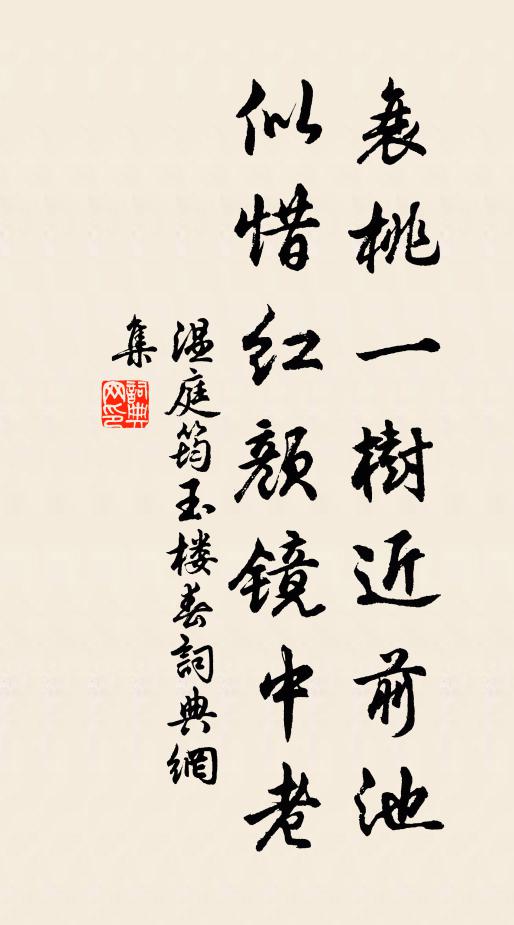 衰桃一樹近前池
似惜红颜镜中老
温庭筠玉楼春詞典網
集
詞典网印